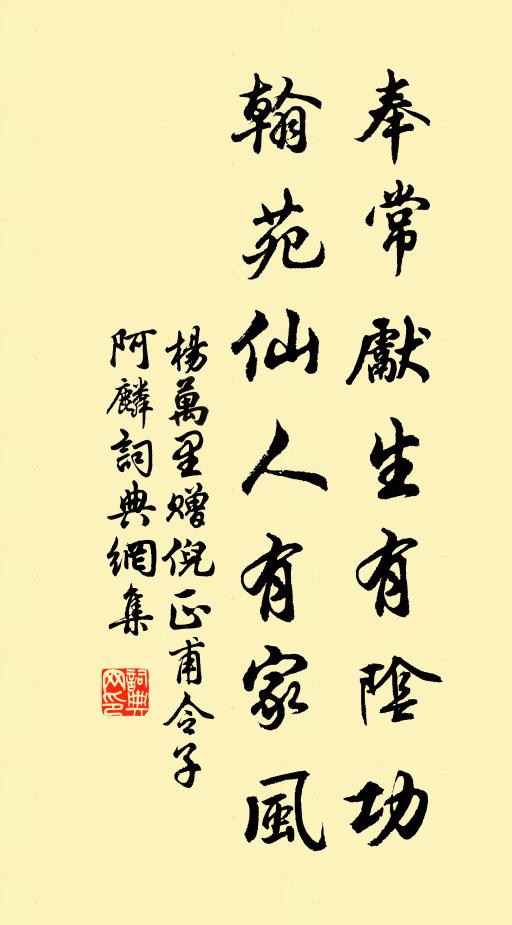 奉常獻生有陰功
翰苑仙人有家風
楊萬里贈倪正甫令子
阿麟詞典網集
詞典网印